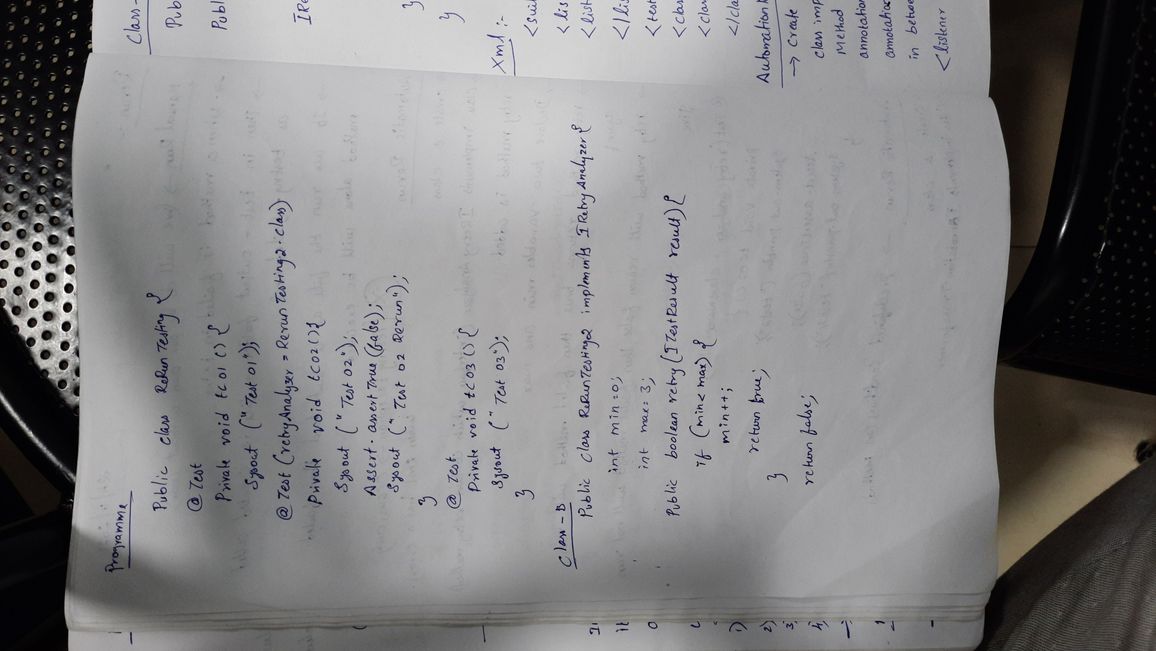 Programme
Public class ReRun Testing {
@ Test
Private void tc01 () {
Sysout ("Test 01");
@ Test (retryAnalyzer = Rerun Testing2.class)
Private void tc02(){
Sysout ("Test 02");
Assert.assert True (false);
Sysout ("Test 02 Rerun");
}
@ Test
Private void tc03 () {
Sysout ("Test 03");
}
Class-B
Public Class ReRunTesting2 implements IRetryAnalyzer {
int min =0;
int max= 3;
Public boolean retry (ITestResult result) {
if (min< max) {
min++;
return true;
}
return false;
Class-
Pub
Publ
IRe
}
}
Xml :-
<suit
<lis
<list
</lis
<test
<clas
<clas
</cla
Automation
→ Create
class imp
Method
annotation
annotation
in betwe
<listener